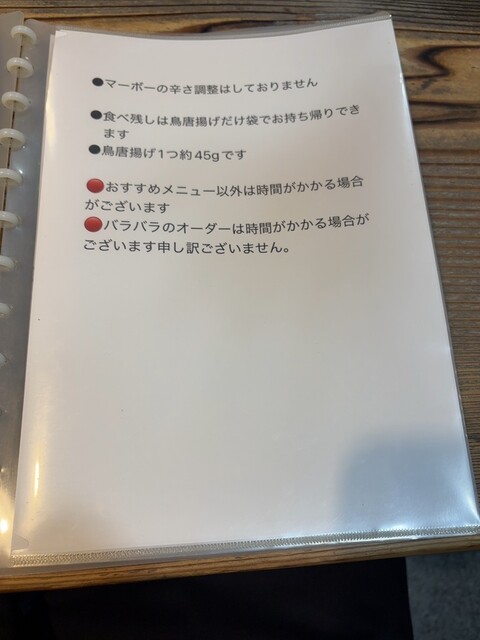 ●マーボーの辛さ調整はしておりません
●食べ残しは鳥唐揚げだけ袋でお持ち帰りでき
ます
●鳥唐揚げ1つ約45gです
🔴おすすめメニュー以外は時間がかかる場合
がございます
🔴バラバラのオーダーは時間がかかる場合が
ございます申し訳ございません。